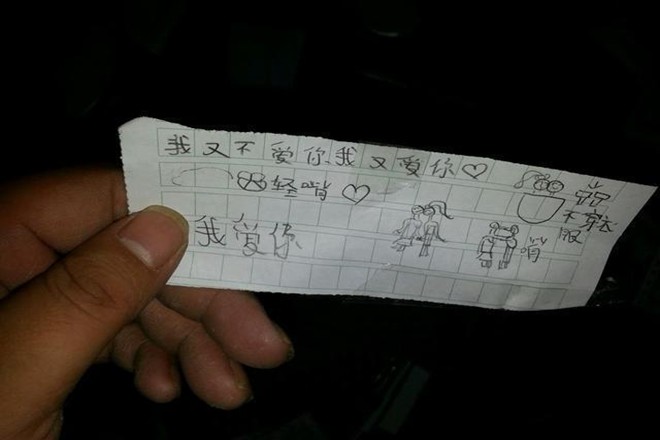 我又不爱你我又爱你
轻啃
我爱你
啃
不穿衣
服